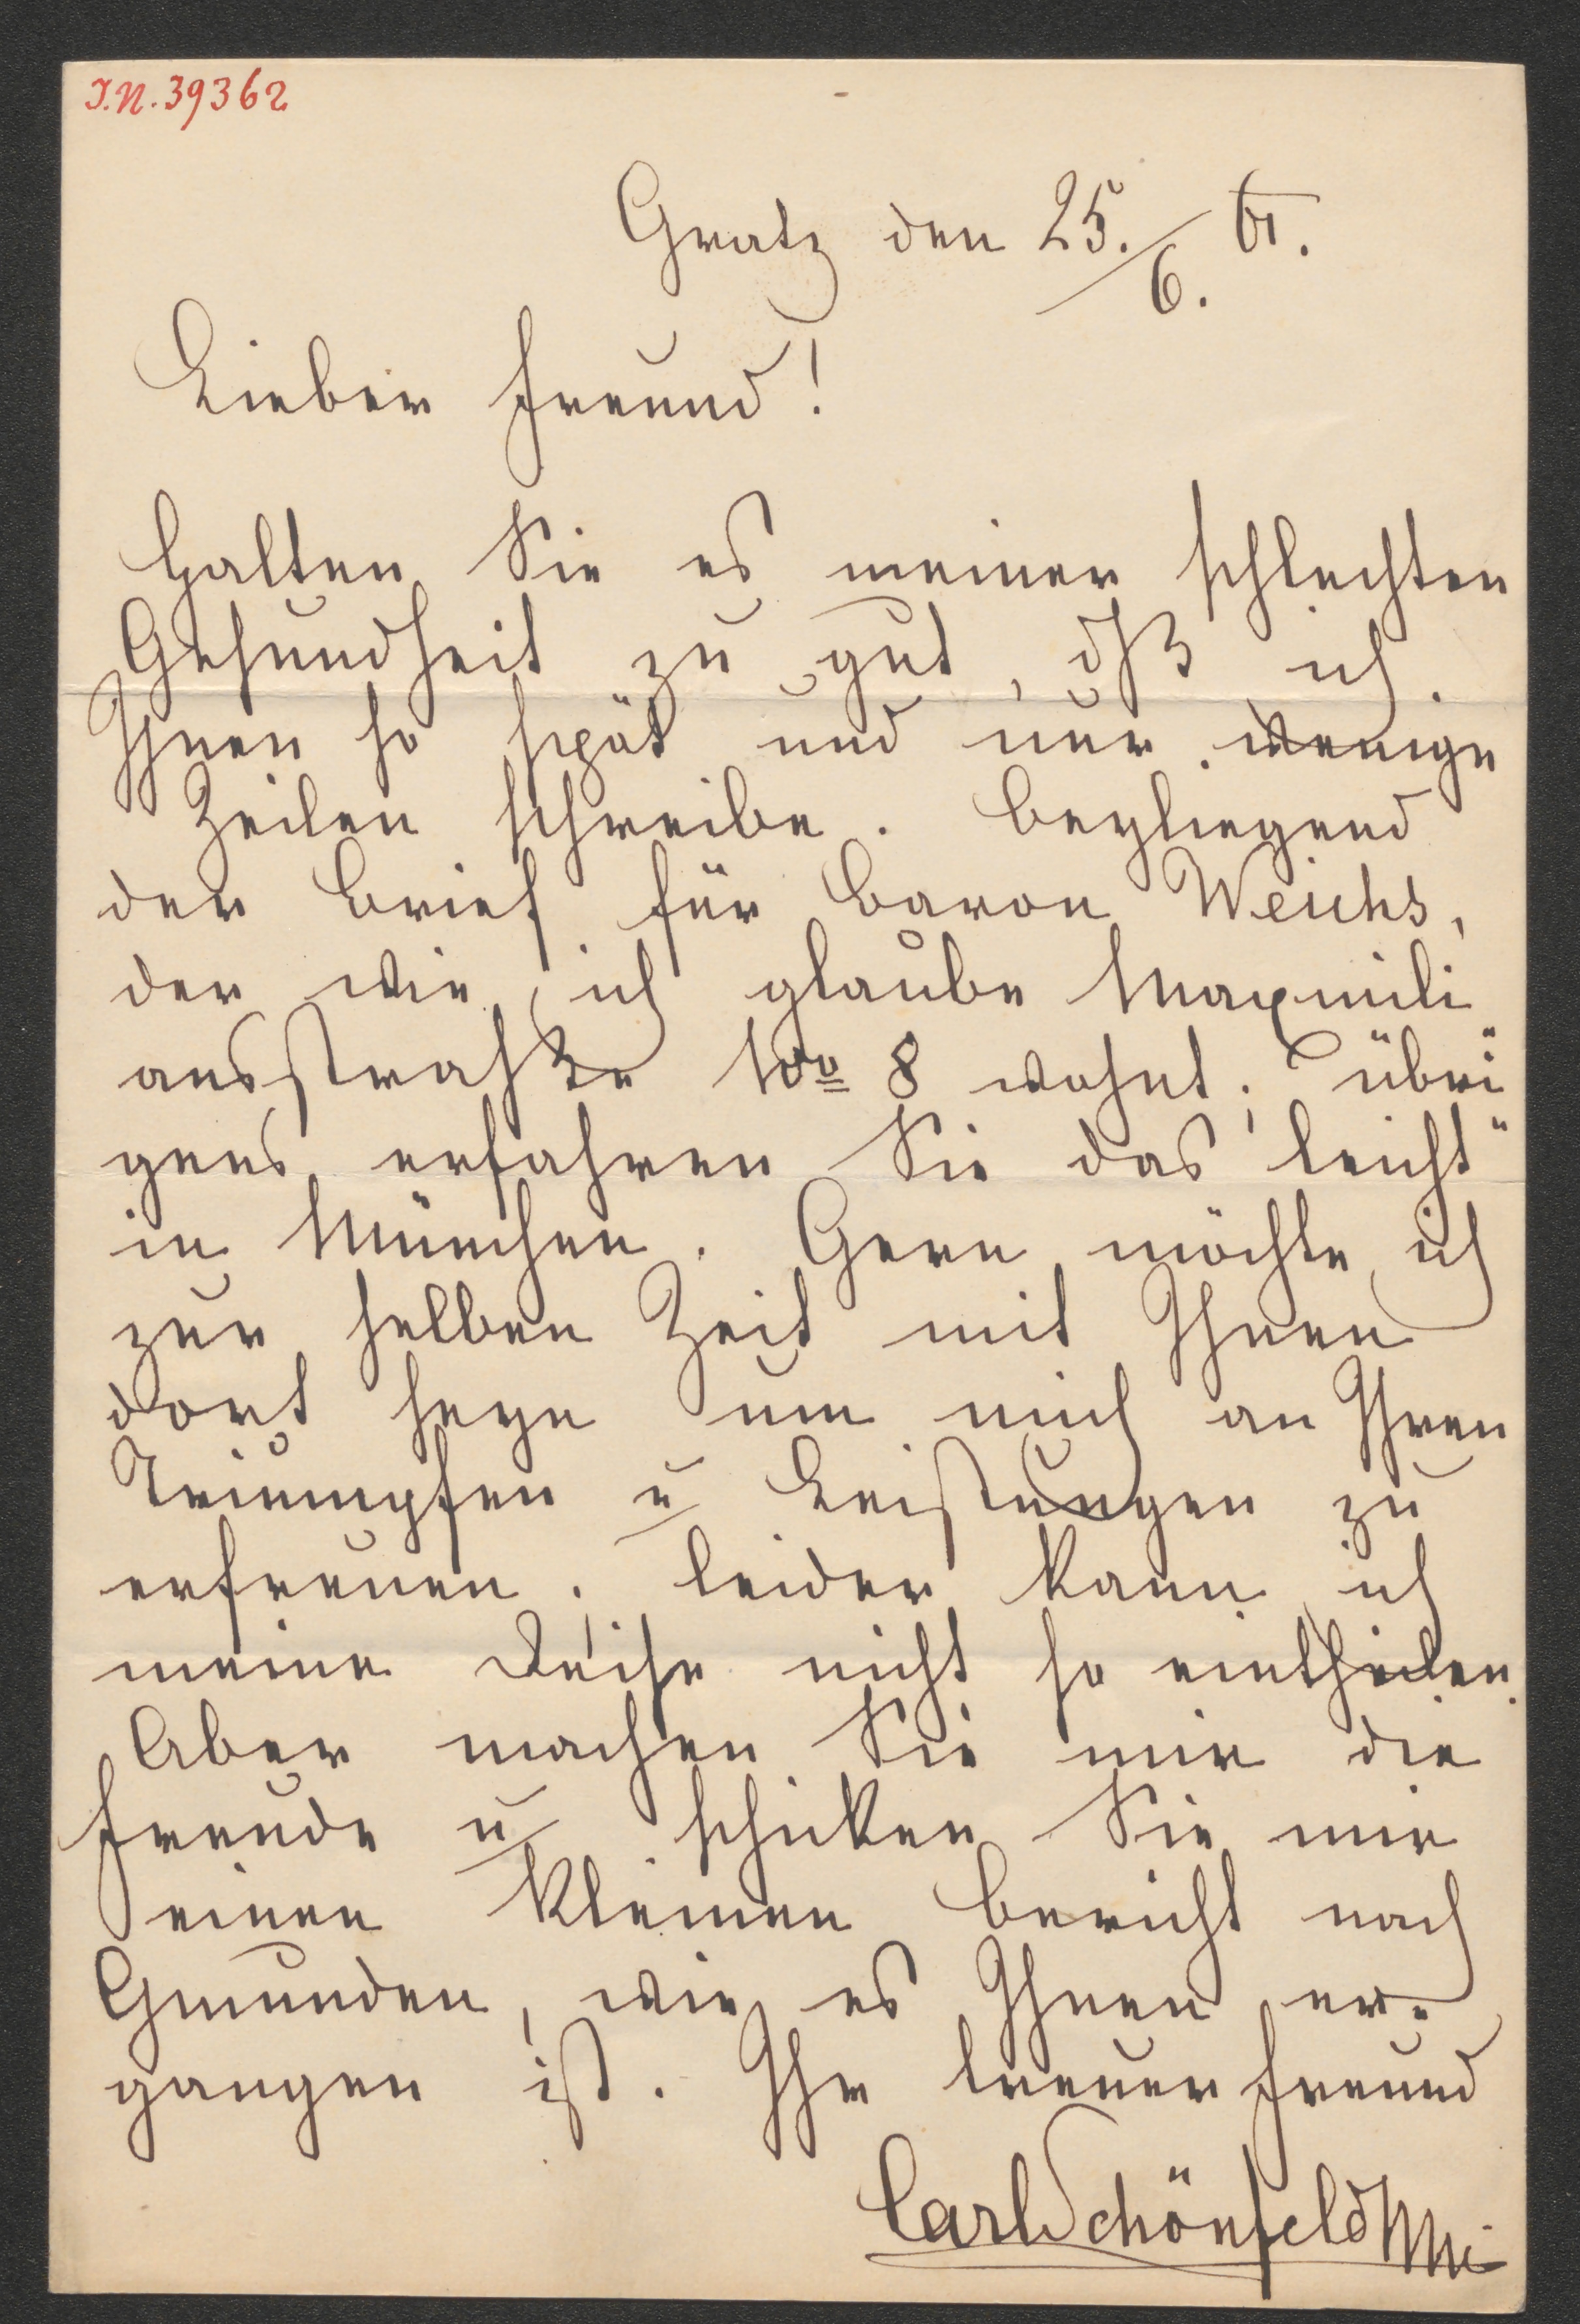 J.N. 39362
Gratz den 25./6. 61.
Lieber Freund!
Halten Sie es meiner schlechten
Gesundheit zu gut, dß ich
Ihnen so spät und nur wenige
Zeilen schreibe. Beyliegend
der Brief für Baron Weichs,
der wie ich glaube Maxmili
ansstraße No 8 wohnt; übri"
gens erfahren Sie das leicht"
in München. Gern möchte ich
zur selben Zeit mit Ihnen
dort seyn um mich an Ihren
Triumpfen u Leistungen zu
erfreuen; leider kann ich
meine Reise nicht so eintheilen.
Aber machen Sie mir die
Freude u schicken Sie mir
einen kleinen Bericht nach
Gmunden, wie es Ihnen er-
gangen ist. Ihr treuer Freund
Carl Schönfeld